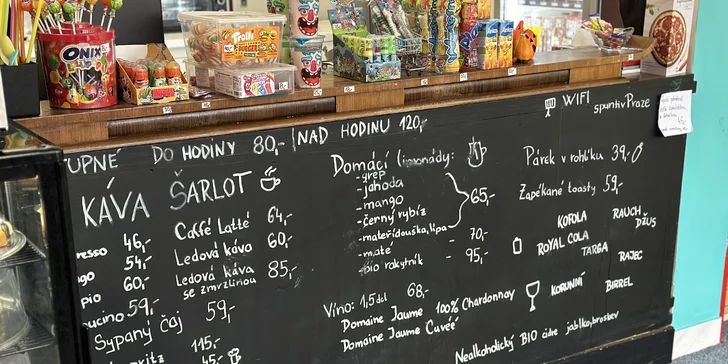 ONIX
Trolli
UPNÉ DO HODINY 80,- NAD HODINU 120,-
WIFI
spuntivPraze
KÁVA ŠARLOT
resso 46,-
ngo 54,-
pio 60,-
ucino 59,-
Sypaný čaj 59,-
115,-
45,-
Caffé Latté 64,-
Ledová káva 60,-
Ledová káva 85,-
se zmrzlinou
Domácí limonády:
- grep
- jahoda
- mango
- černý rybíz
65,-
- mateřídouška, lípa
- maté - 70,-
- bio rakytník - 95,-
Víno: 1,5dcl 68,-
Domaine Jaume 100% Chardonnay
Domaine Jaume Cuvée
Párek v rohlíku 39,-
Zapékané toasty 59,-
KOFOLA
RAUCH
DŽUS
ROYAL COLA
TARGA
RAJEC
KORUNNÍ
BIRREL
Nealkoholický BIO cidre jablko, broskev